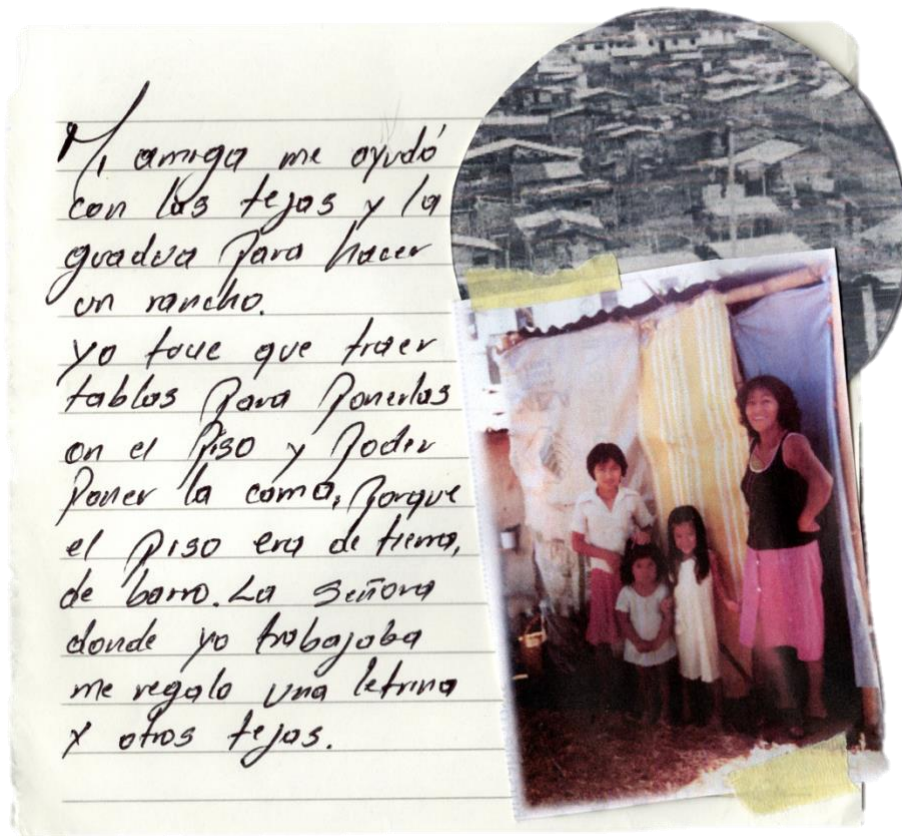 Mi amiga me ayudó
con las tejas y la
guadua para hacer
un rancho.
yo tuve que traer
tablas para ponerlas
en el piso y poder
poner la cama, porque
el piso era de tierra,
de barro. La Señora
donde yo trabajaba
me regalo una letrina
y otras tejas.